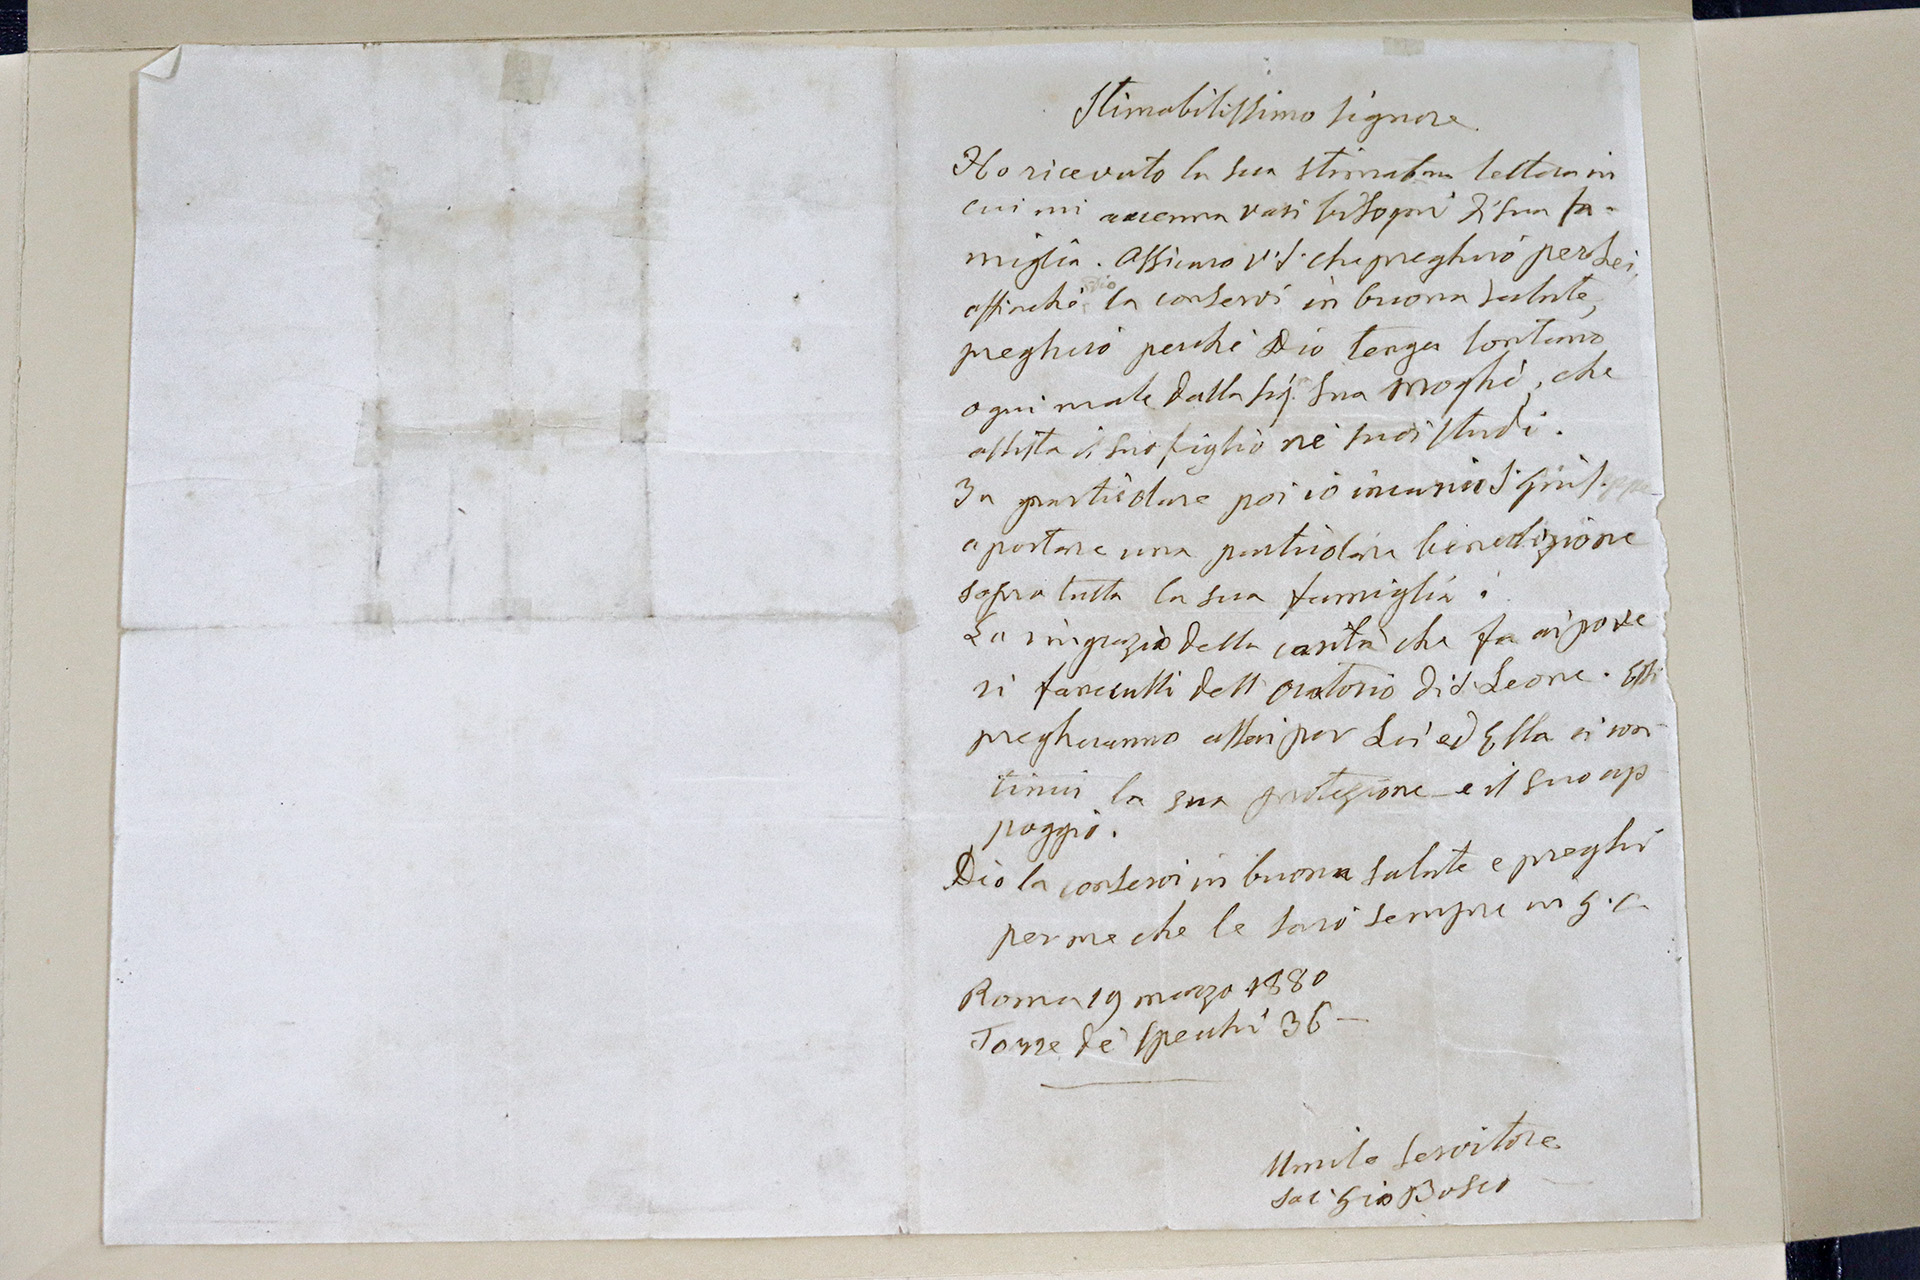 Stimabilissimo Signore
Ho ricevuto la sua stimatma lettera in
cui mi accenna vari bisogni di sua fa-
miglia. Assicuro V.S. che pregherò per Lei,
affinchè Dio la conservi in buona salute,
pregherò perchè Dio tenga lontano
ogni male dalla sig. sua moglie, che
assista il suo figlio ne' suoi studi.
In particolare poi io incarico S. Giuseppe
a portare una particolare benedizione
sopra tutta la sua famiglia.
La ringrazio della carità che fa ai pove
ri fanciulli dell'Oratorio di S. Leone. Essi
pregheranno assai per Lei ed Ella ci con
tinui la sua protezione e il suo ap
poggio.
Dio la conservi in buona salute e preghi
per me che le sarò sempre in G. C.
Roma 19 marzo 1880
Torre de' Specchi 36 —
Umile servitore
Sac. Gio Bosco